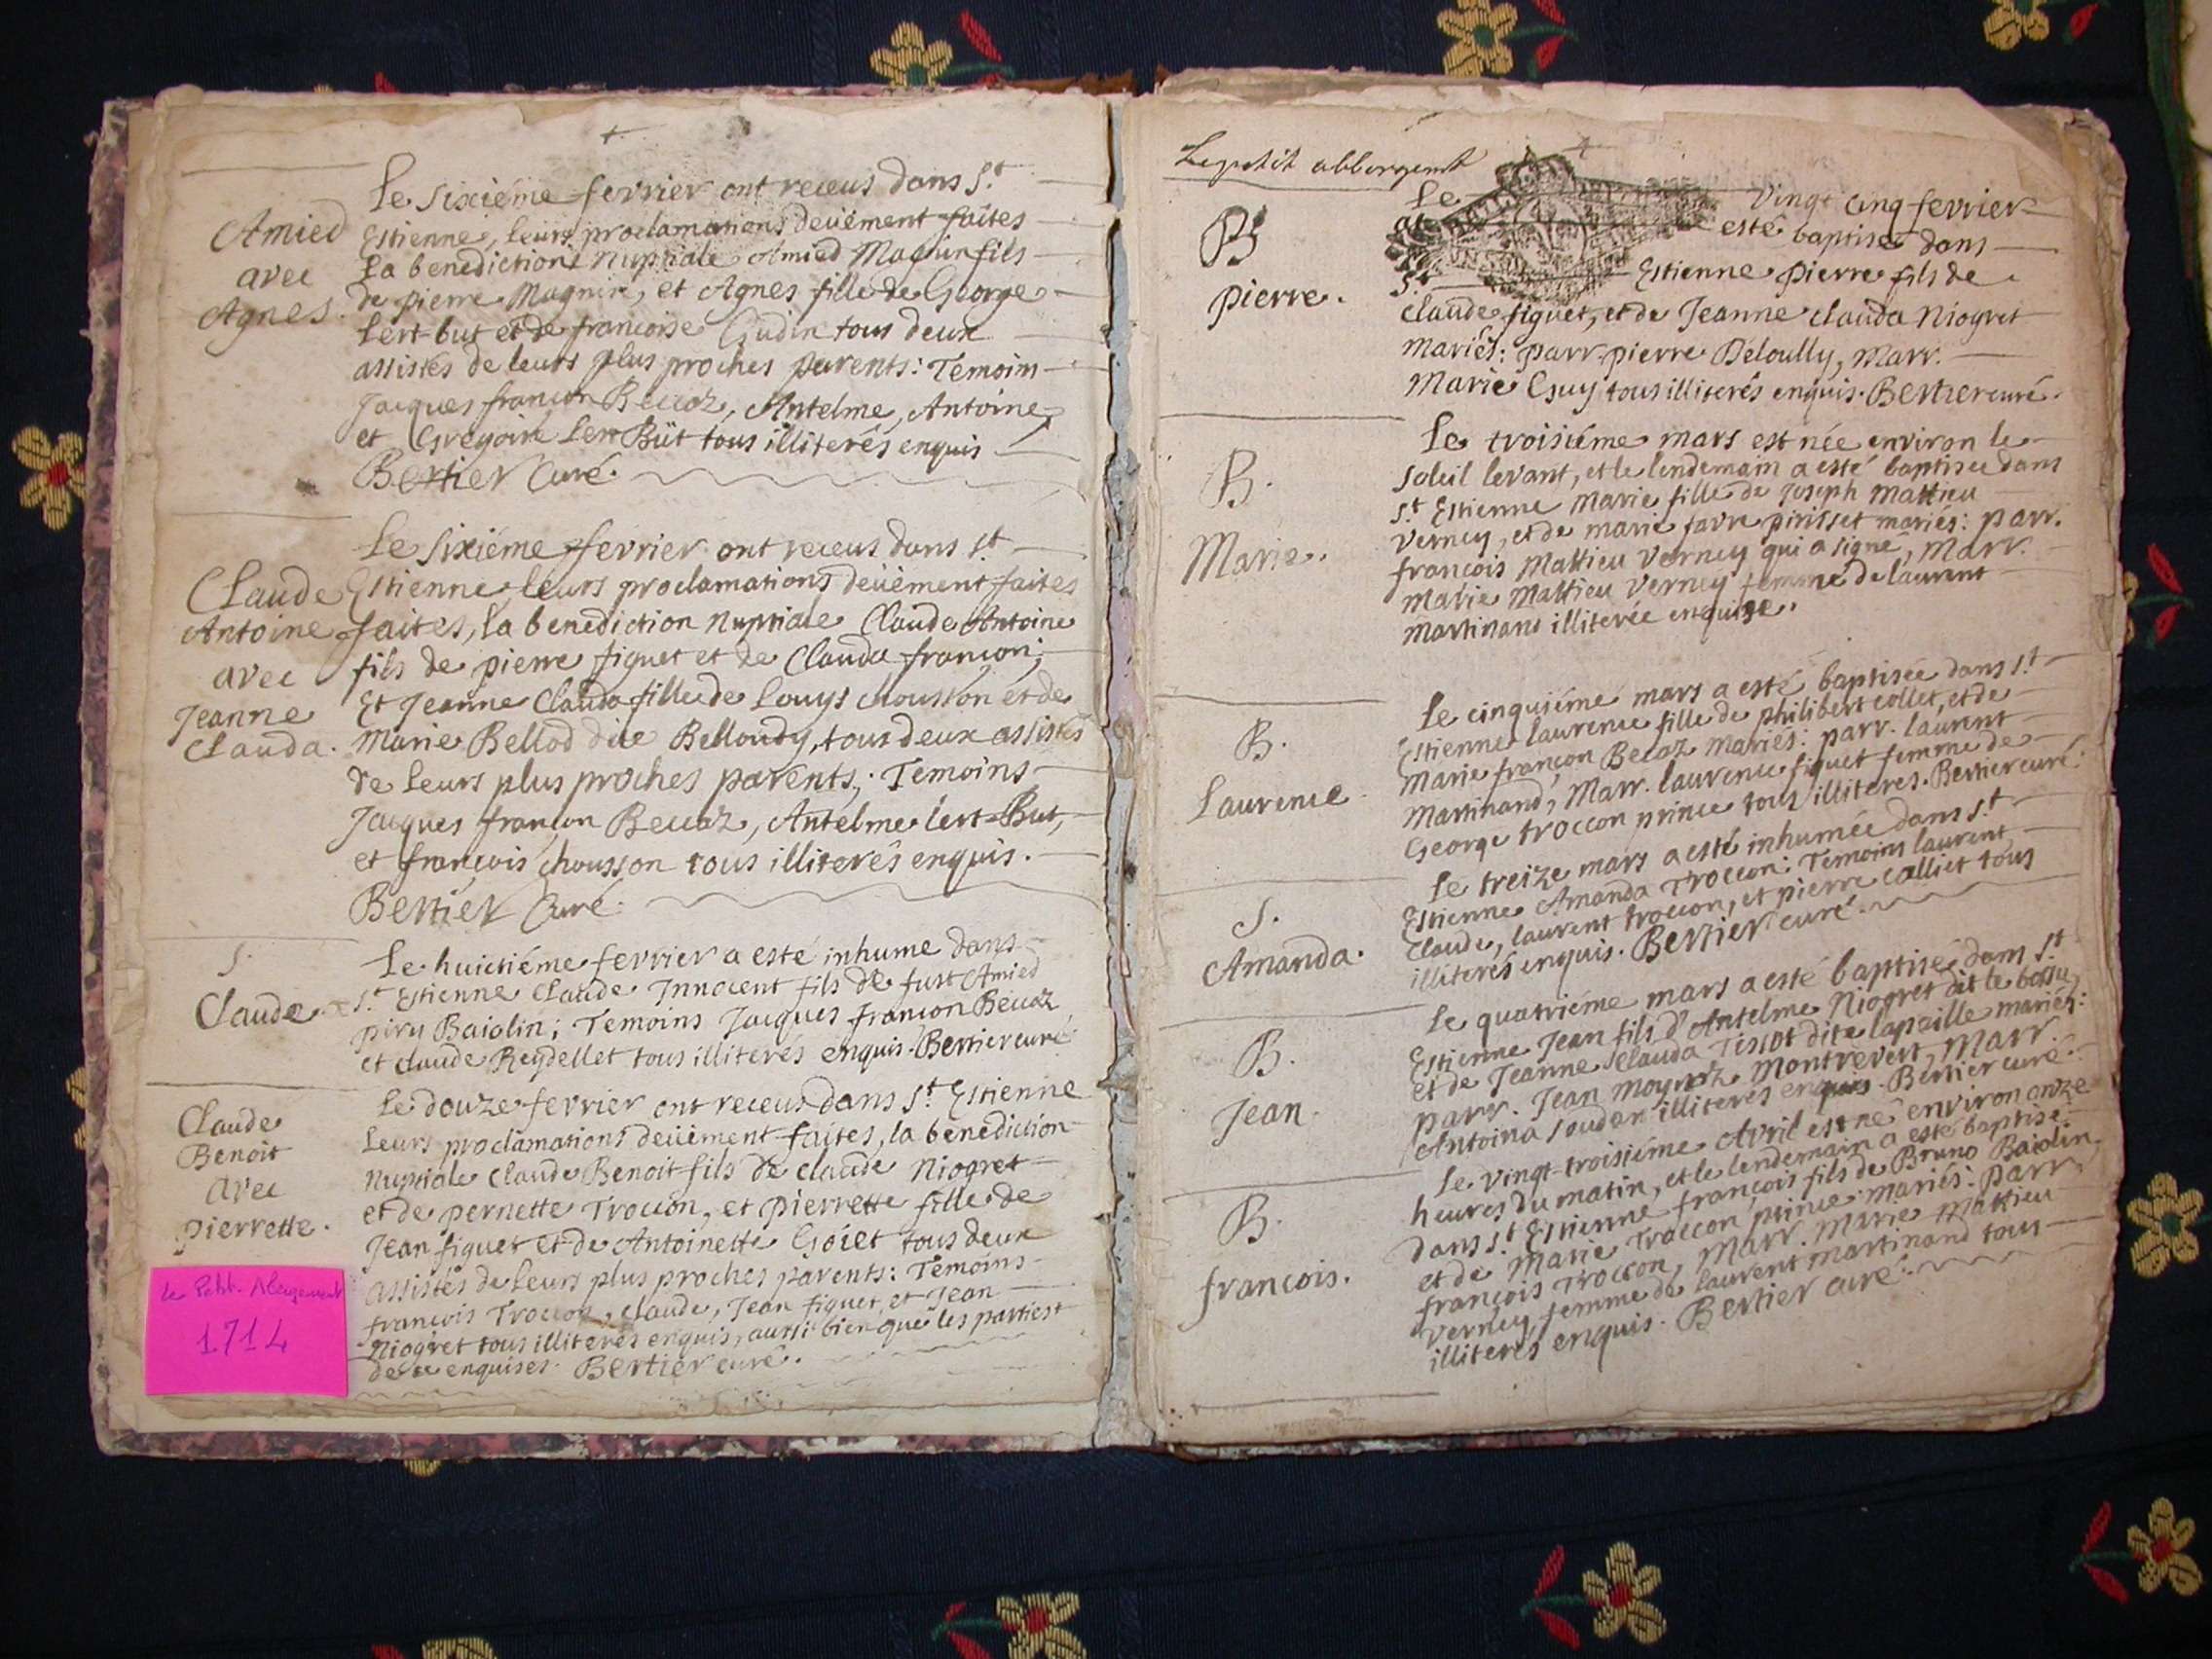 Le sixiéme fevrier ont receus dans S.t
Amied
avec
Agnes.
Estienne, leurs proclamations deüement faites
la benediction Nuptiale Amied Magnin fils
de pierre Magnin, et Agnes fille de George
Lert-but et de francoise Gudin tous deux
assistés de leurs plus proches parents: Temoins
Jacques françon Beccaz, Antelme, Antoine,
et Gregoire Lert Büt tous illiterés enquis
Bertier Curé.
Le sixiéme fevrier ont receus dans S.t
Claude
Antoine
avec
Jeanne
Clauda.
Estienne, leurs proclamations deüement faites
faites, la benediction Nuptiale Claude Antoine
fils de pierre figuet et de Clauda françon;
Et Jeanne Clauda fille de Louys chousson et de
Marie Bellod dite Belloudy, tous deux assistés
de leurs plus proches parents; Temoins
Jacques françon Beccaz, Antelme lert-But,
et françois chousson tous illiterés enquis.
Bertier Curé.
S.
Claude
Le huictiéme fevrier a esté inhumé dans
S.t Estienne Claude Innocent fils de fust Amied
piru Baiolin; Temoins Jacques françon Beccaz
et claude Reydellet tous illiterés enquis. Bertier curé
Claude
Benoit
avec
pierrette.
Le douze fevrier ont receus dans S.t Estienne
leurs proclamations deüement faites, la benediction
Nuptiale Claude Benoit fils de claude Niogret
et de pernette Troccon, et pierrette fille de
Jean figuet et de Antoinette Goiet tous deux
assistés de leurs plus proches parents: Temoins
françois Troccon, claude, Jean figuet, et Jean
Niogret tous illiterés enquis, aussi bien que les parties
de ce enquises. Bertier curé.
le Petit Abergement
1714
Le petit abbergemt
B
pierre.
Le vingt cinq fevrier
at esté baptisé dans
S.t Estienne pierre fils de
claude figuet, et de Jeanne clauda Niogret
mariés: parr. pierre Deloully, Marr.
Marie Guy tous illiterés enquis. Bertier curé.
B.
Marie.
Le troisiéme mars est née environ le
soleil levant, et le lendemain a esté baptisée dans
S.t Estienne Marie fille de Joseph Mattieu
Verney, et de marie favre pirisset mariés: parr.
françois Mattieu Verney qui a signé, Marr.
Marie Mattieu Verney femme de laurent
Martinand illiterée enquise.
B.
Laurence
Le cinquiéme mars a esté baptisée dans S.t
Estienne laurence fille de philibert collet, et de
Marie françon Becaz mariés: parr. laurent
Martinand, Marr. laurence figuet femme de
George troccon prince tous illiteres. Bertier curé.
S.
Amanda.
Le treize mars a esté inhumée dans S.t
Estienne Amanda Troccon: Temoins laurent
Claude, laurent troccon, et pierre calliet tous
illiterés enquis. Bertier curé.
B.
Jean.
Le quatriéme mars a esté baptisé dans S.t
Estienne Jean fils d'Antelme Niogret dit le bossu,
et de Jeanne Clauda Tissot dite lapaille mariés:
parr. Jean Moyroz Montrevert, Marr.
Antoina soudan illiteres enquis. Bertier curé.
B.
francois.
Le vingt-troisiéme Avril est né environ onze
heures du matin, et le lendemain a esté baptisé
dans S.t Estienne françois fils de Bruno Baiolin,
et de Marie Troccon prince mariés: parr
françois Troccon, Marr. Marie Mattieu
Verney, femme de laurent Martinand tous
illiteres enquis. Bertier curé.